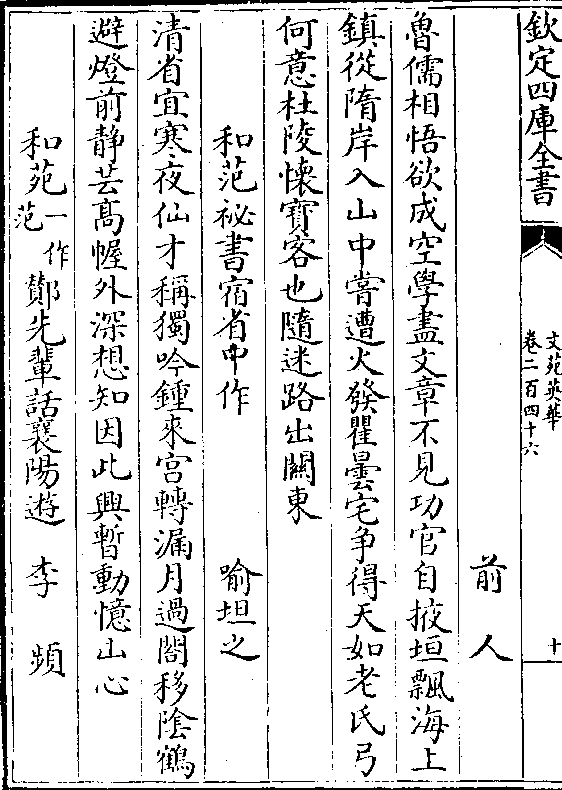 欽定四庫全書
文苑英華
卷二百四十六
十
前人
魯儒相悟欲成空學盡文章不見功官自掖垣飄海上
鎮從隋岸入山中嘗遭火發瞿曇宅争得天如老氏弓
何意杜陵懷寶客也隨迷路出關東
和范祕書宿省中作 喻坦之
清省宜寒夜仙才稱獨吟鍾來宮轉漏月過閣移陰鶴
避燈前静芸髙幄外深想知因此興暫動憶山心
和苑一作范鄭先輩話襄陽遊 李頻